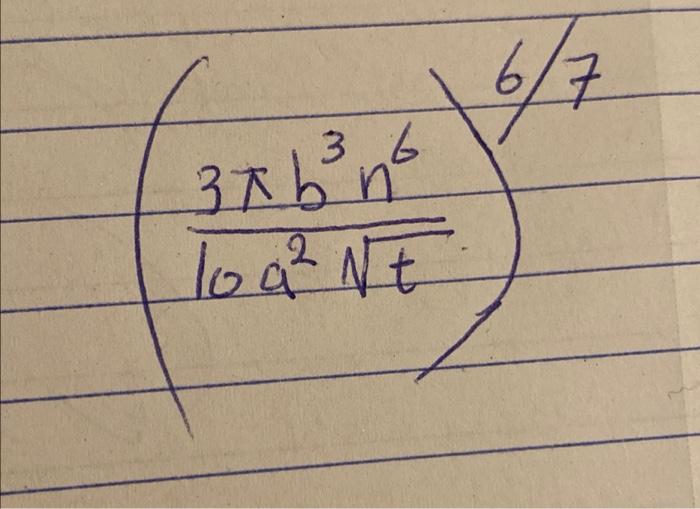 (3πb³n⁶ / 10a²√t)^6/7